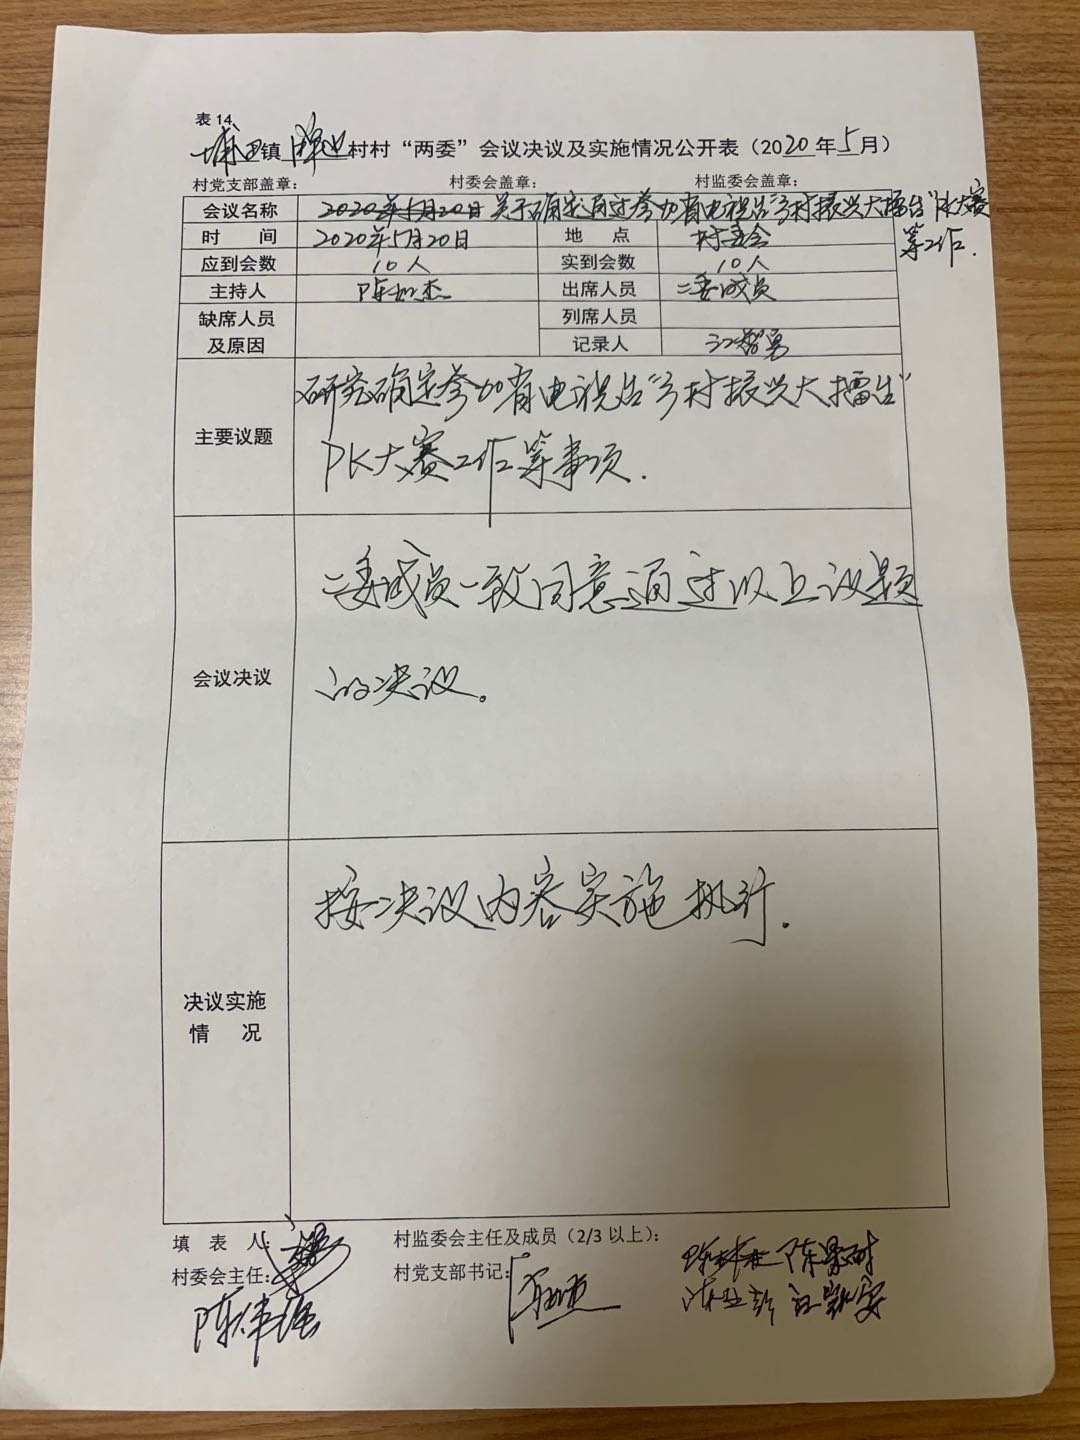 表 14
埔田镇 村村“两委”会议决议及实施情况公开表（2020年5月）
村党支部盖章： 村委会盖章： 村监委会盖章：
会议名称 2020年5月20日关于确定通过参加省电视台“乡村振兴大擂台”PK大赛
等工作.
时 间 2020年5月20日 地 点 村委会
应到会数 10人 实到会数 10人
主持人 陈 杰 出席人员 二委成员
缺席人员 列席人员
及原因 记录人 江 勇
主要议题 研究确定参加省电视台“乡村振兴大擂台”
PK大赛工作等事项.
会议决议 二委成员一致同意通过以上议题
的决议。
决议实施 按决议内容实施执行.
情 况
填 表 人： 村监委会主任及成员（2/3 以上）：
村委会主任： 村党支部书记：
陈伟强